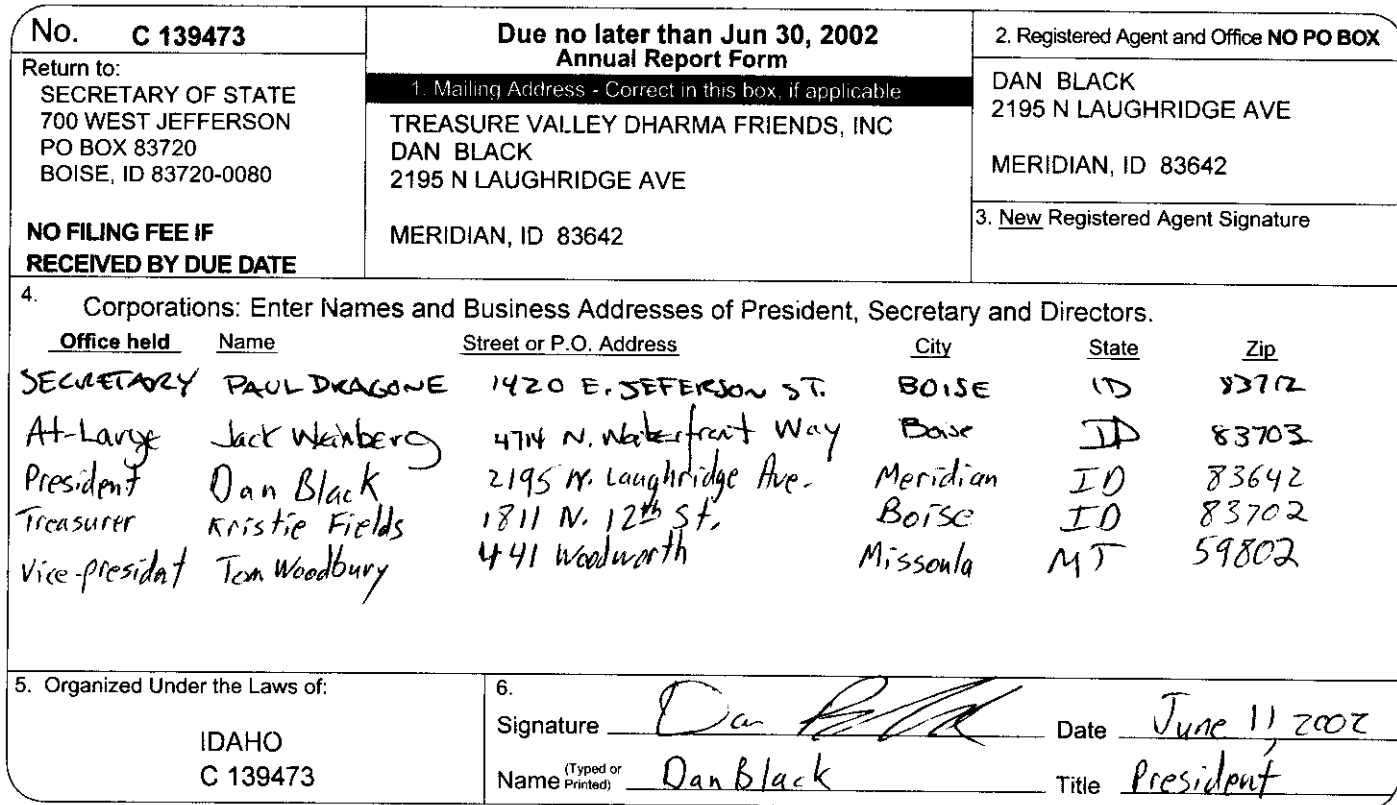 No. C 139473
Return to:
SECRETARY OF STATE
700 WEST JEFFERSON
PO BOX 83720
BOISE, ID 83720-0080
NO FILING FEE IF
RECEIVED BY DUE DATE
Due no later than Jun 30, 2002
Annual Report Form
1. Mailing Address - Correct in this box, if applicable
TREASURE VALLEY DHARMA FRIENDS, INC
DAN BLACK
2195 N LAUGHRIDGE AVE
MERIDIAN, ID 83642
2. Registered Agent and Office NO PO BOX
DAN BLACK
2195 N LAUGHRIDGE AVE
MERIDIAN, ID 83642
3. New Registered Agent Signature
4. Corporations: Enter Names and Business Addresses of President, Secretary and Directors.
Office held Name Street or P.O. Address City State Zip
SECRETARY PAUL DRAGONE 1420 E. JEFERSON ST. BOISE ID 83712
At-Large Jack Weinberg 4714 N. Waterfront Way Boise ID 83703
President Dan Black 2195 N. Laughridge Ave. Meridian ID 83642
Treasurer Kristie Fields 1811 N. 12th St. Boise ID 83702
Vice-president Tom Woodbury 441 Woodworth Missoula MT 59802
5. Organized Under the Laws of:
IDAHO
C 139473
6.
Signature Dan Black Date June 11, 2002
Name (Typed or Printed) Dan Black Title President